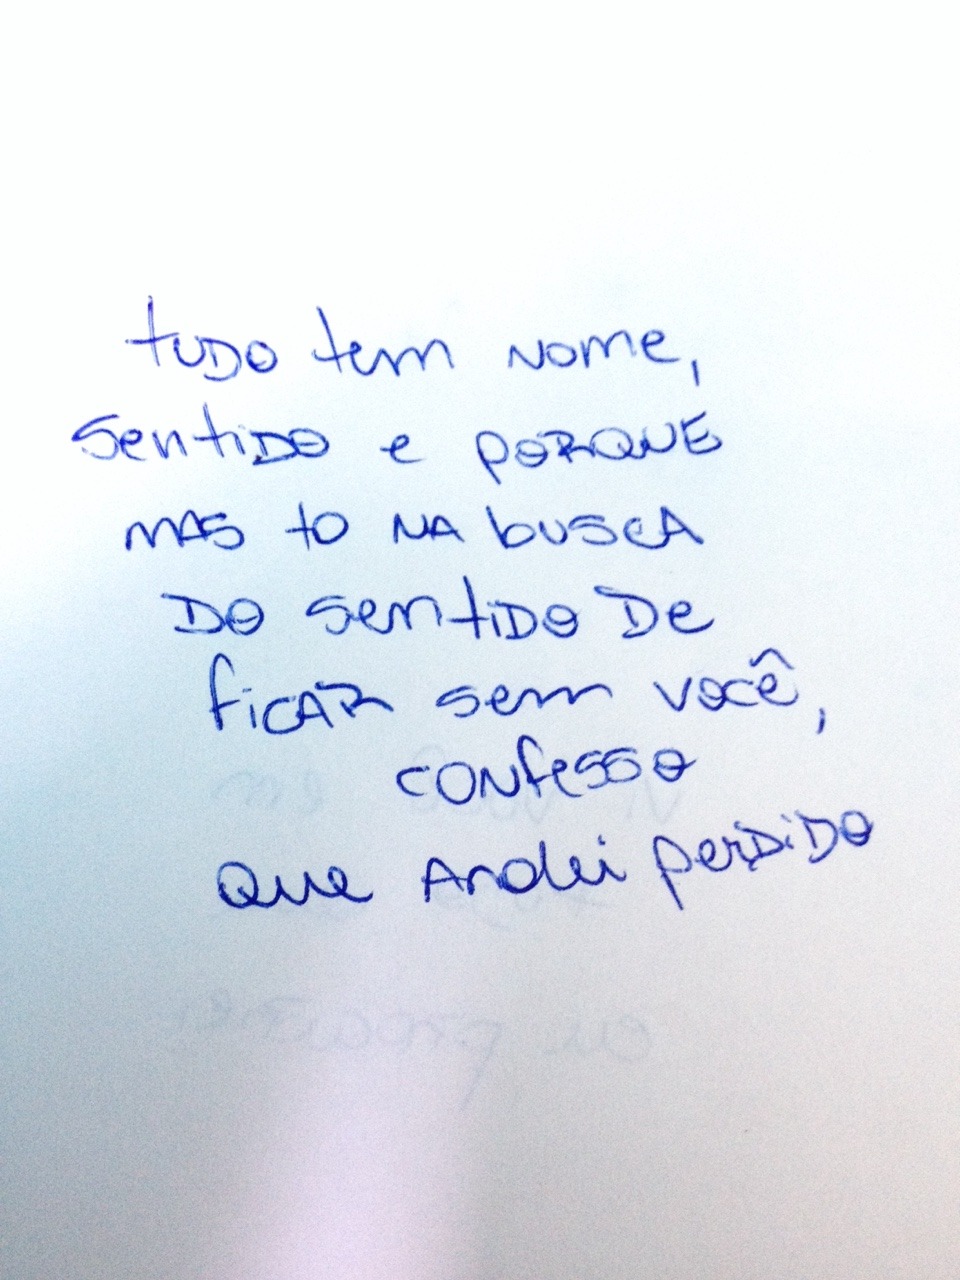 tudo tem nome,
sentido e porque
mas to na busca
do sentido de
ficar sem você,
confesso
que andei perdido